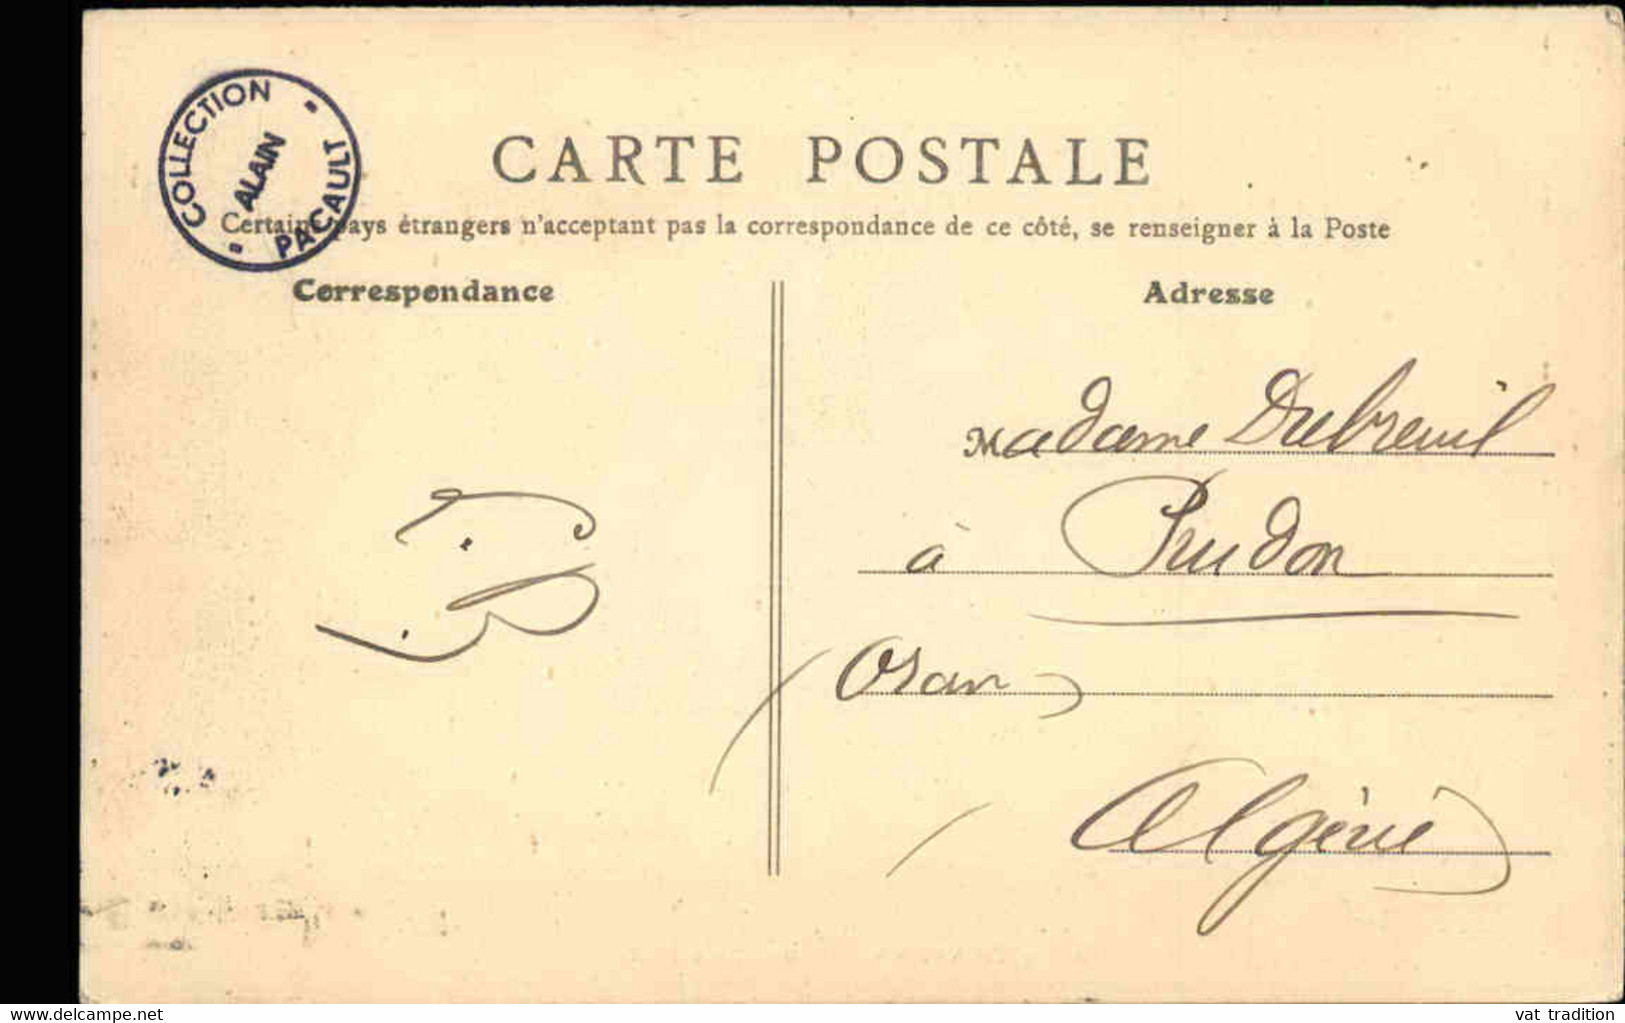 COLLECTION
ALAIN
PACAULT
CARTE POSTALE
Certains pays étrangers n'acceptant pas la correspondance de ce côté, se renseigner à la Poste
Correspondance
Adresse
Madame Dubreuil
à Prudon
Oran
Algérie
www.delcampe.net
vat tradition